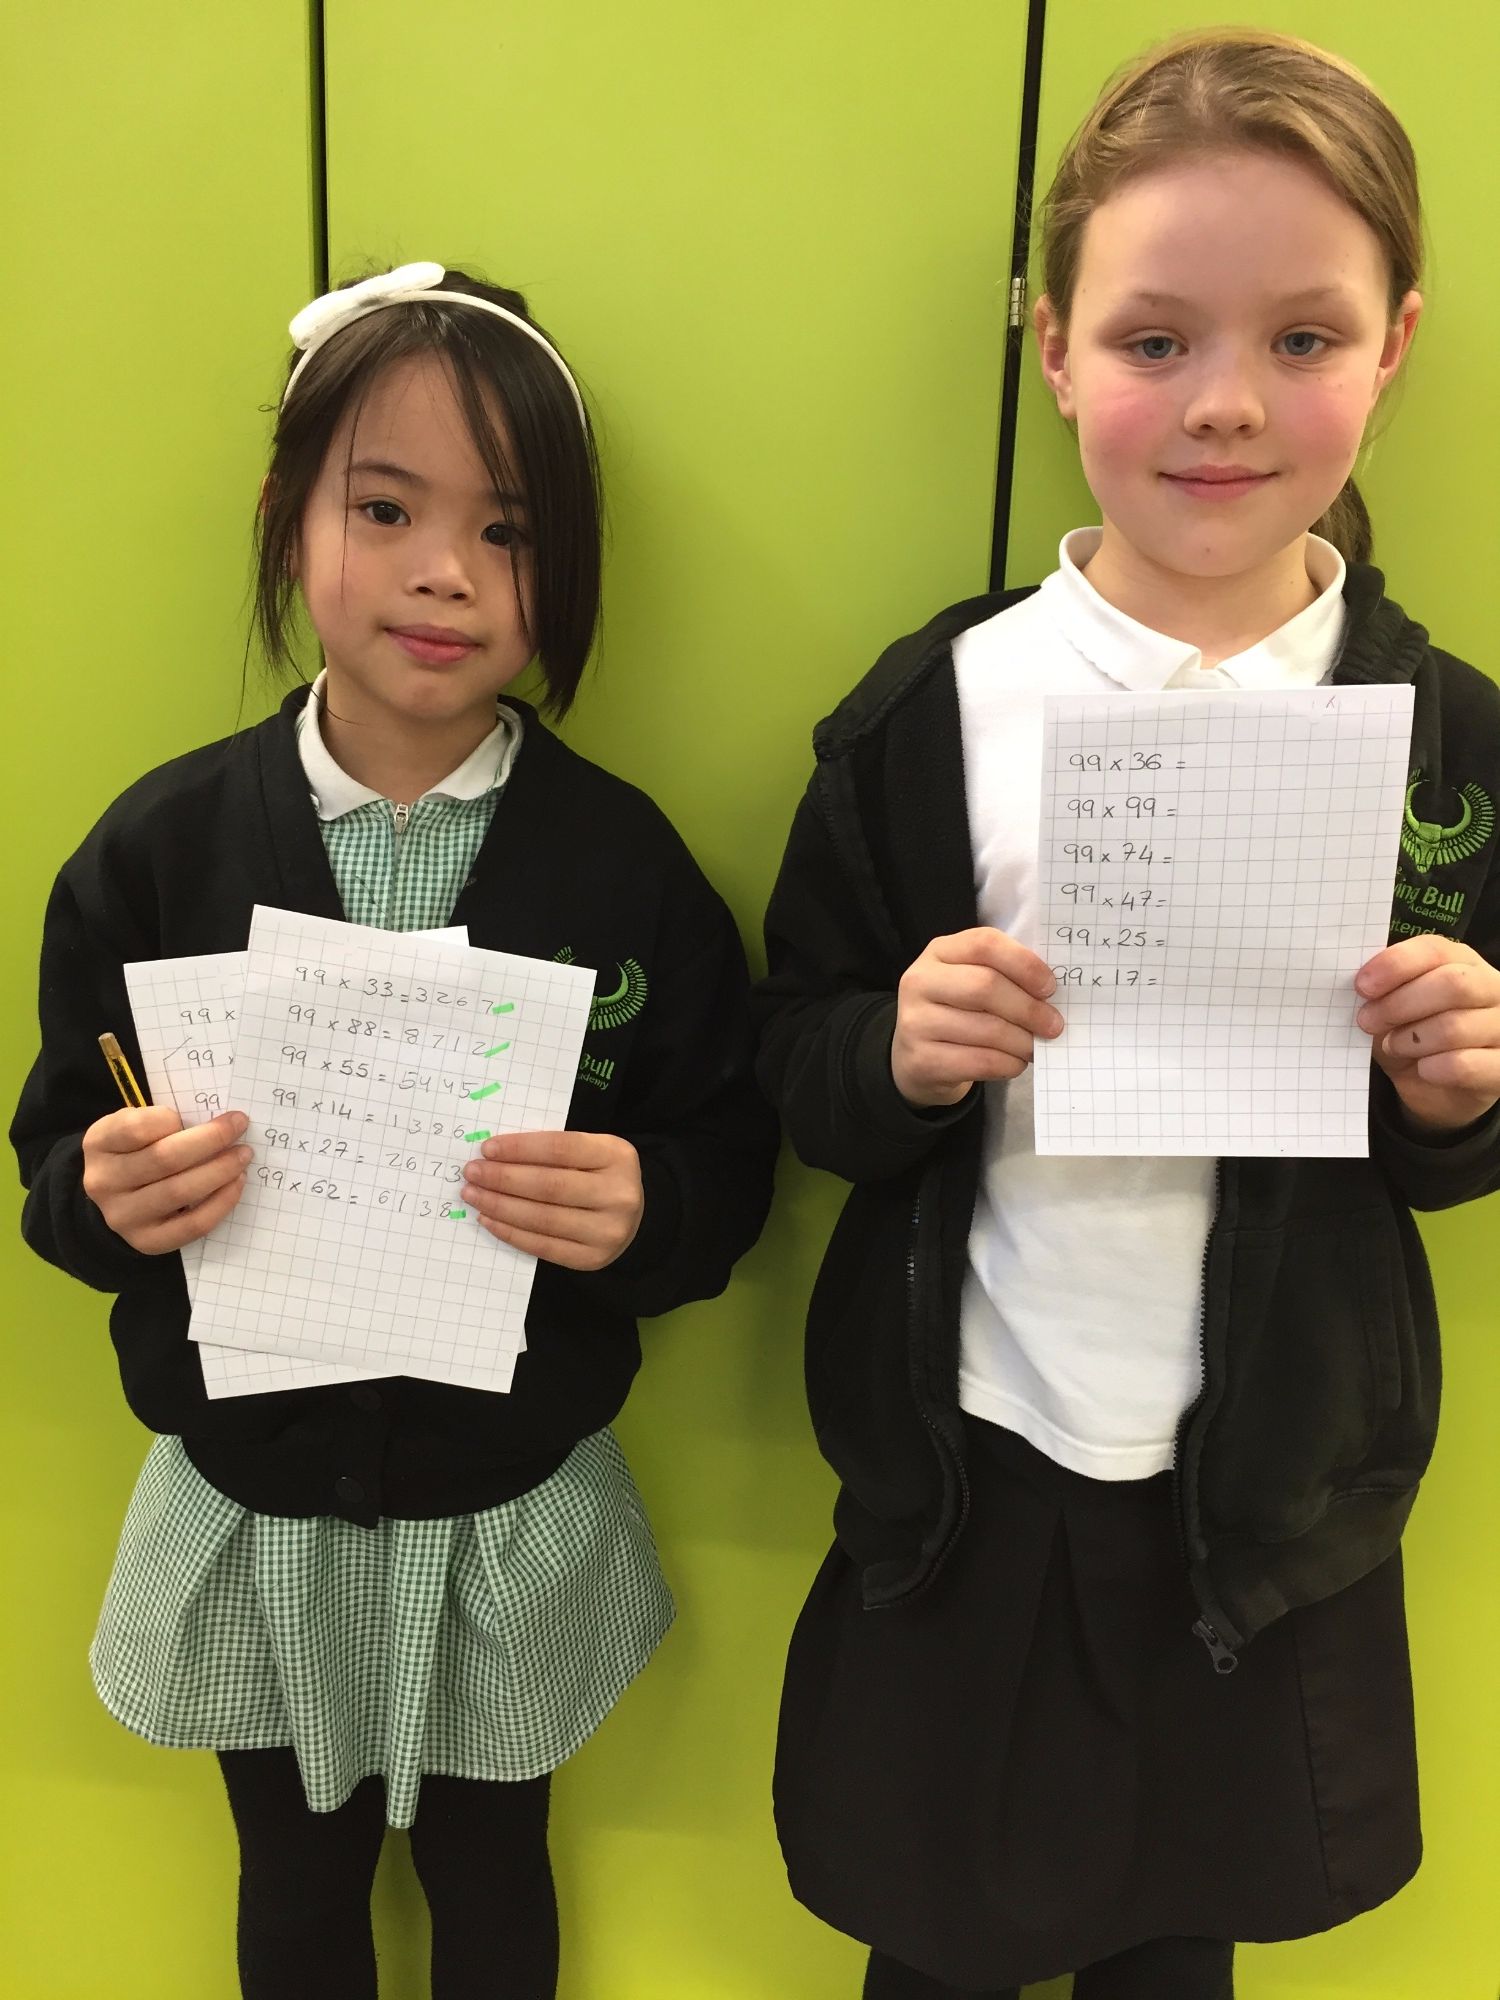 99 × 33 = 3267
99 × 88 = 8712
99 × 55 = 5445
99 × 14 = 1386
99 × 27 = 2673
99 × 62 = 6138
99 ×
99
99
Bull
99 × 36 =
99 × 99 =
99 × 74 =
99 × 47 =
99 × 25 =
99 × 17 =
Bull
Academy